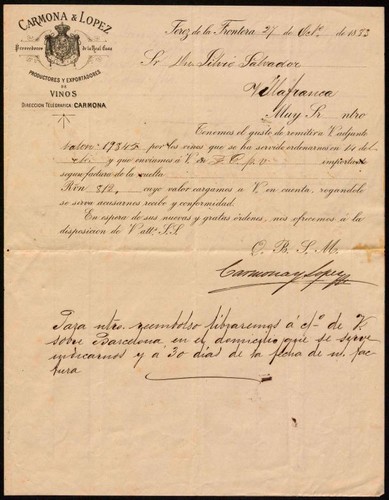 CARMONA & LOPEZ
Proveedores de la Real Casa
PRODUCTORES Y EXPORTADORES
DE
VINOS
DIRECCION TELEGRÁFICA CARMONA.
Jerez de la Frontera 27 de Oct.e de 1883
Sr Dn Silvio Salvador
Villafranca
Muy Sr ntro
Tenemos el gusto de remitir a V. adjunto
talon nº 19345 por los vinos que se ha servido ordenarnos en 14 del
y que enviamos á V. importan
segun factura de la vuelta
Rvn 312, cuyo valor cargamos á V. en cuenta, rogandole
se sirva acusarnos recibo y conformidad.
En espera de sus nuevas y gratas órdenes, nos ofrecemos á la
disposicion de V. att.s S.S.
Q. B. S. M.
Carmona y Lopez
Para ntro. reembolso libraremos á c/o de V.
sobre Barcelona en el domicilio que se sirva
indicarnos y á 30 dias de la fecha de n. fac
tura